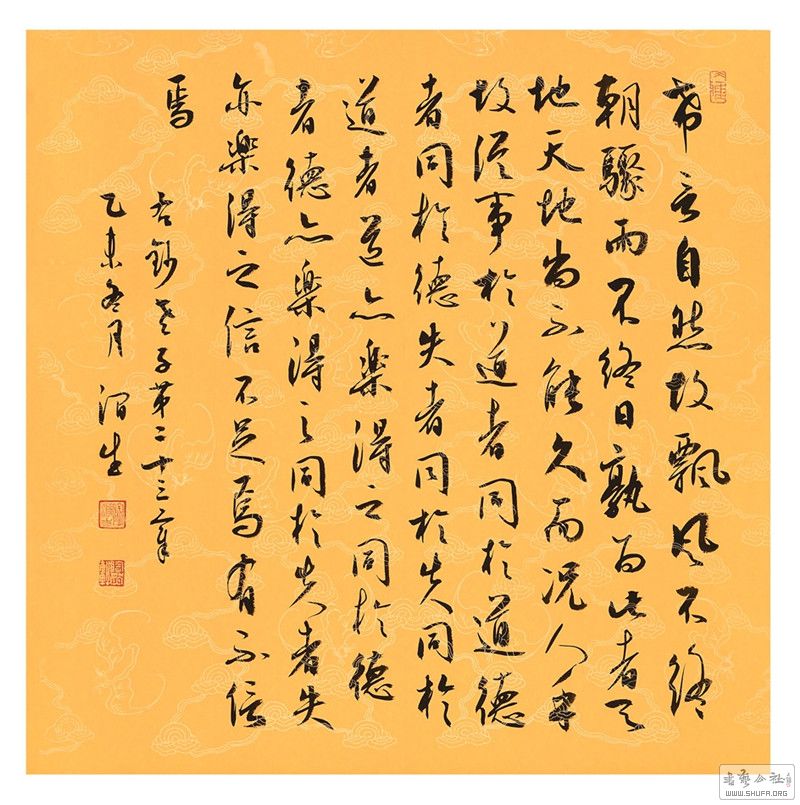 希言自然故飄風不終
朝驟雨不終日孰為此者天
地天地尚不能久而況人乎
故從事於道者同於道德
者同於德失者同於失同於
道者道亦樂得之同於德
者德亦樂得之同於失者失
亦樂得之信不足焉有不信
焉
右鈔老子第二十三章
乙未冬月
書藝公社
WWW.SHUFA.ORG